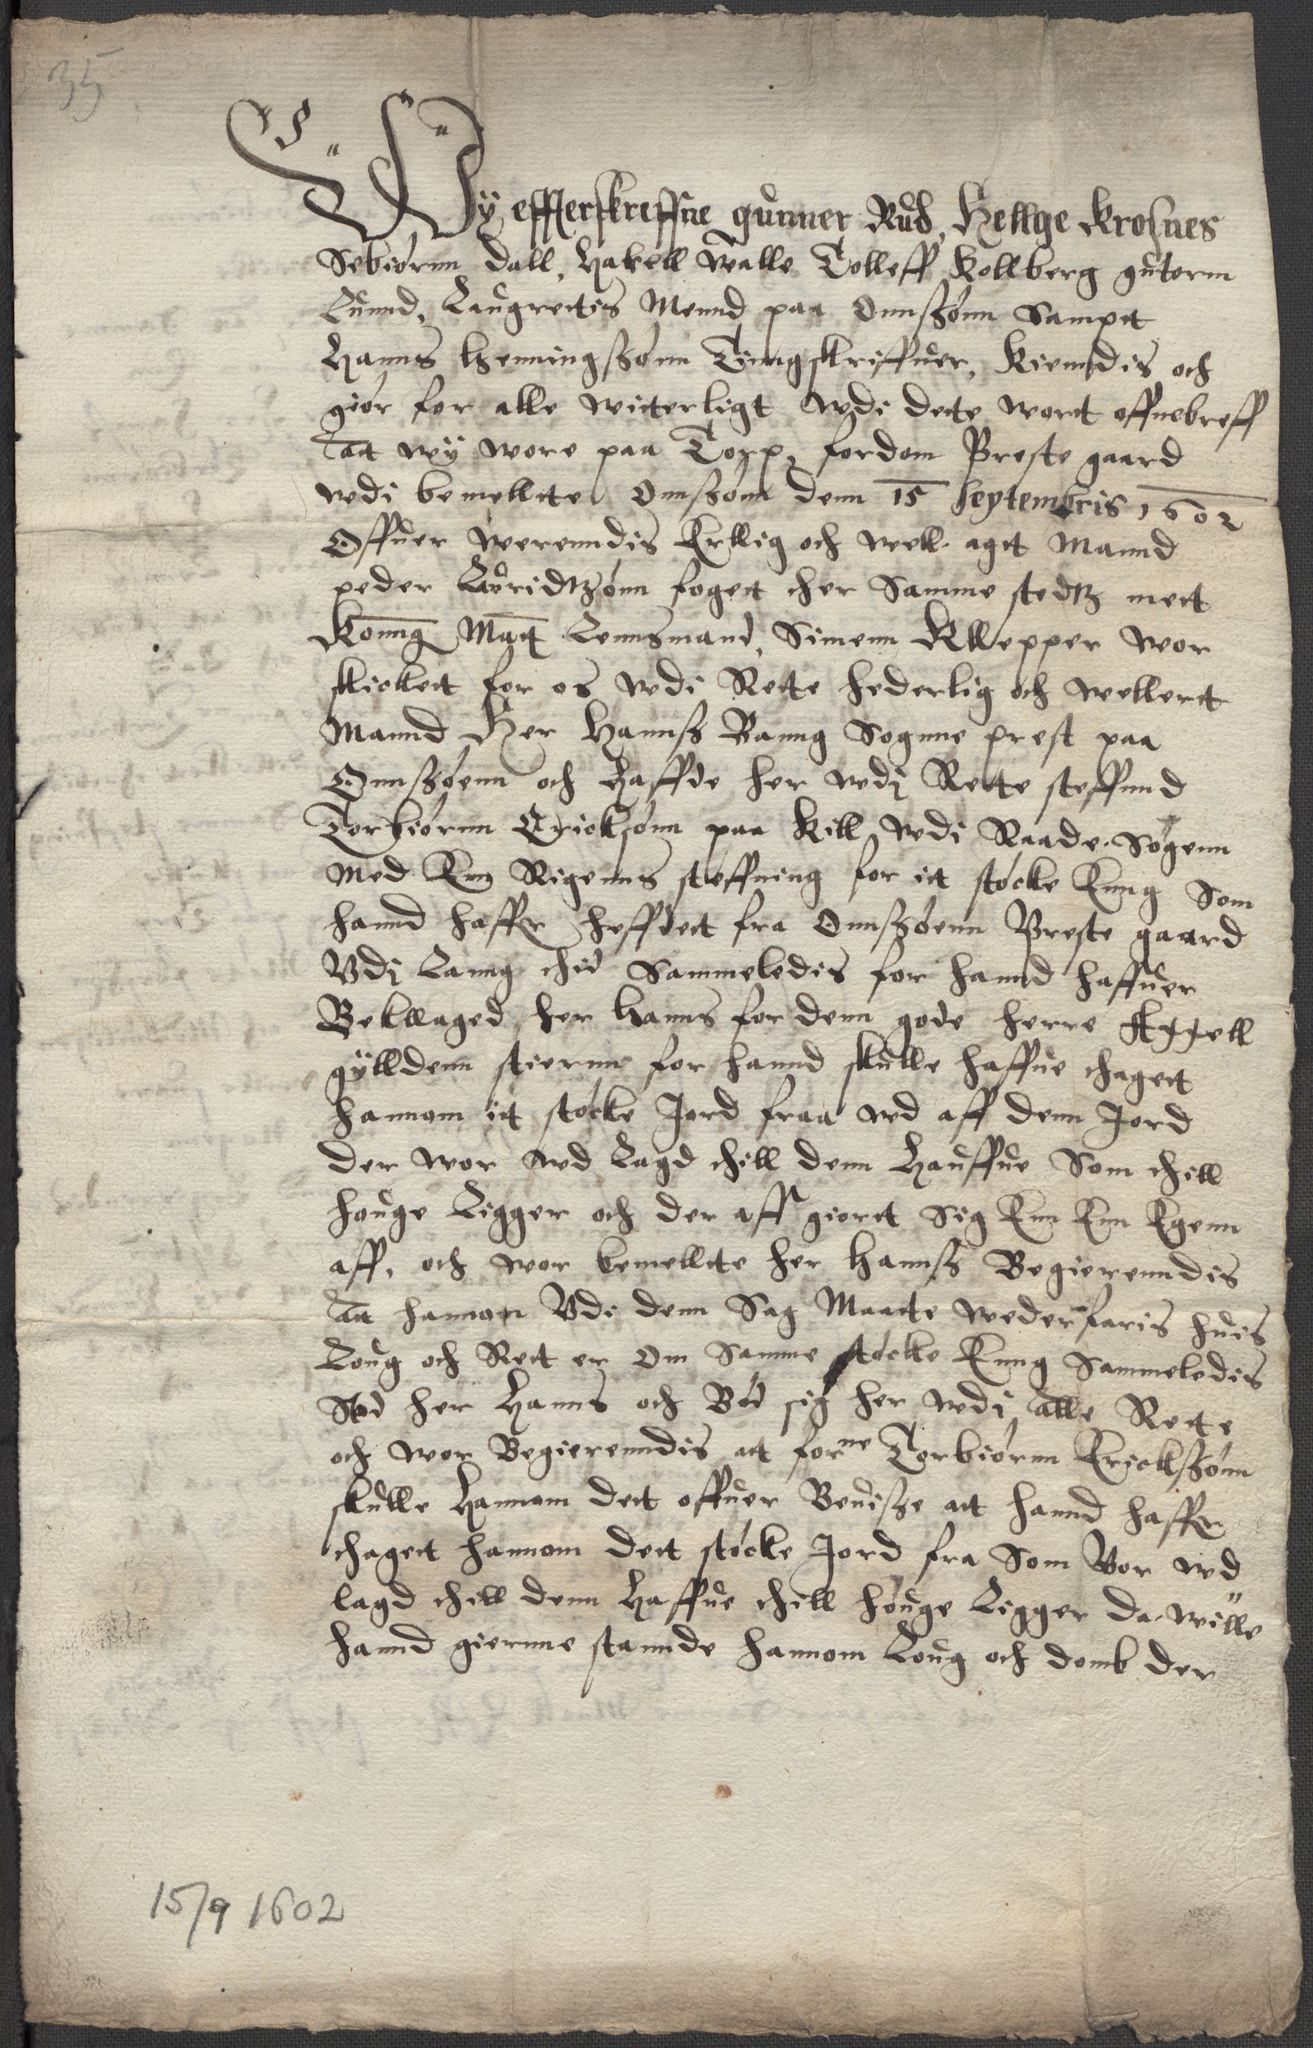 35
Wÿ effterskreffne gunner Rud, Hellge Krosnes
Sebiørnn Dall, Hakell Walle Tolleff Kollberg gutorm
Lunnd, Laugrettis Mennd paa Onnsønn Sampt
Hanns Henningsønn Tingskriffuer, Kiendis och
giør for alle witterligt wdi dette wort offnebreff
att wÿ wore paa Torp, fordom Preste gaard
wdi bemellte Onnsønn denn 15 Septembris 1602
Offuer werenndis Erllig och well agt Mannd
peder Lauridtzønn fogett her Samme stedtz mett
Konng Matt Lennsmand, Simenn Kllepper wor
skickett for os wdi Rette hederlig och wellertt
Mannd Her Hannss Banng Sogne prest paa
Onnsøenn och Haffde her wdi Rette steffnnd
Torbiørnn Ericksønn paa Kill wdi Raade Sogenn
Med Enn Rigenns steffning for itt støcke Enng Som
hannd haffr heffdett fra Onnsøenn Preste gaard
Vdi Lanng thid Sammeledis for hannd haffuer
Bekllaged her Hanns for denn gode herre Axell
gÿlldenn stiernne for hannd skulle haffue thagett
hannom itt støcke Jord fraa wd aff denn Jord
der wor wd Lagd thill denn Hauffue Som thill
houge Ligger och der aff giortt Sig Enn Enn Egenn
aff, och wor bemellte her Hannss Begierenndis
att hannom Vdi denn Sag Maatte wederfaris huis
Loug och Rett er Om Samme støcke Enng Sammeledis
Stod her Hanns och Bød sig her wdi alle Rette
och wor Begierenndis att forne Torbiørnn Ericksønn
skulle Hannom dett offuer Beuisse att hannd haffr
thagett hannom dett støcke Jord fra Som Vor wd
lagd thill denn Haffue thill houge Ligger da wille
hannd giernne stannde hannom Loug och domb der
15/9 1602